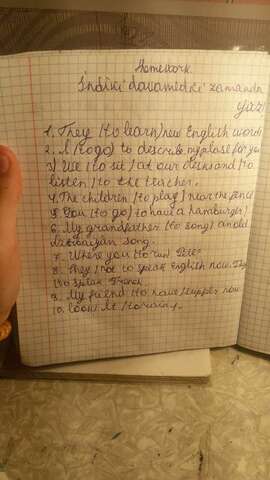 Homework
İndiki davamedici zamanda
1. They (to learn) new English words
2. I (to go) to describe my place for you
3) We (to sit) at our desks and (to
listen) to the teacher.
4. The children (to play) near the fence
5. You (to go) to have a hamburger!
6. My grandfather (to song) an old
Azerbaijan song.
7. Where you (to run), Pete?
8. They (not to speak English now. They
(to speak French.
9. My friend (to have) supper now
10. Look! It (to rain).